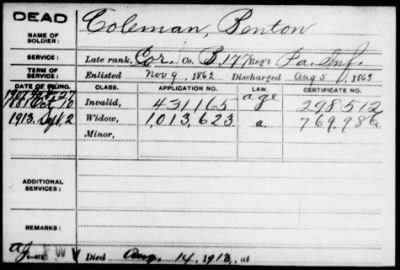 DEAD
NAME OF SOLDIER: Coleman, Benton
SERVICE: Late rank, Cor. Co. B, 177 Reg't Pa. Inf.
TERM OF SERVICE: Enlisted Nov 9, 1862 Discharged Aug 5, 1863
DATE OF FILING. CLASS. APPLICATION NO. LAW. CERTIFICATE NO.
Invalid, 431165 age 298.512
1913. Sept, 2 Widow, 1,013,623 a. 769.986
Minor,
ADDITIONAL SERVICES:
REMARKS:
Died Aug. 14, 1913, at